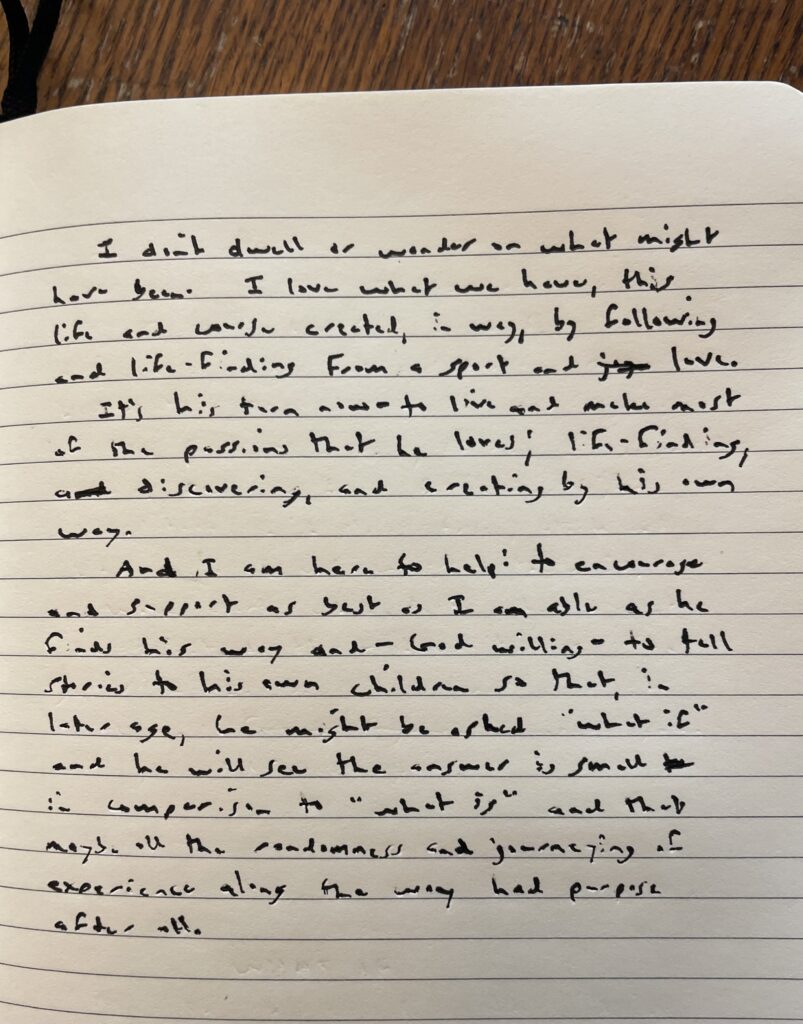 I don't dwell or wonder on what might
have been. I love what we have, this
life and course created, in way, by following
and life-finding from a sport and love.
It's his turn now to live and make most
of the passions that he loves; life-finding,
and discovering, and creating by his own
way.
And, I am here to help: to encourage
and support as best as I am able as he
finds his way and - God willing - to tell
stories to his own children so that, in
later age, he might be asked "what if"
and he will see the answer is small
in comparison to "what is" and that
maybe all the randomness and journeying of
experience along the way had purpose
after all.